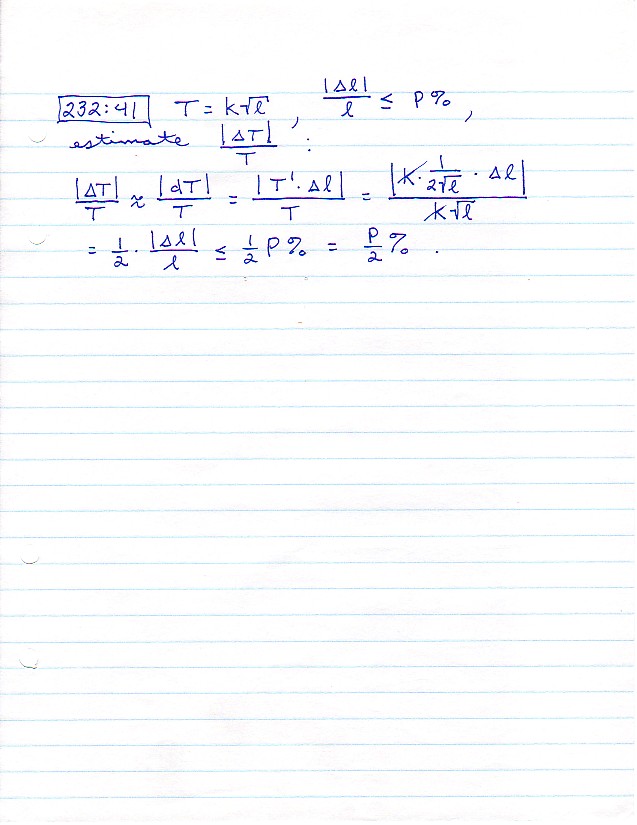 232:41 T = k√l , |Δl|/l ≤ P % ,
estimate |ΔT|/T :
|ΔT|/T ≈ |dT|/T = |T'·Δl|/T = |k·1/(2√l)·Δl|/(k√l)
= 1/2 · |Δl|/l ≤ 1/2 P % = P/2 % .